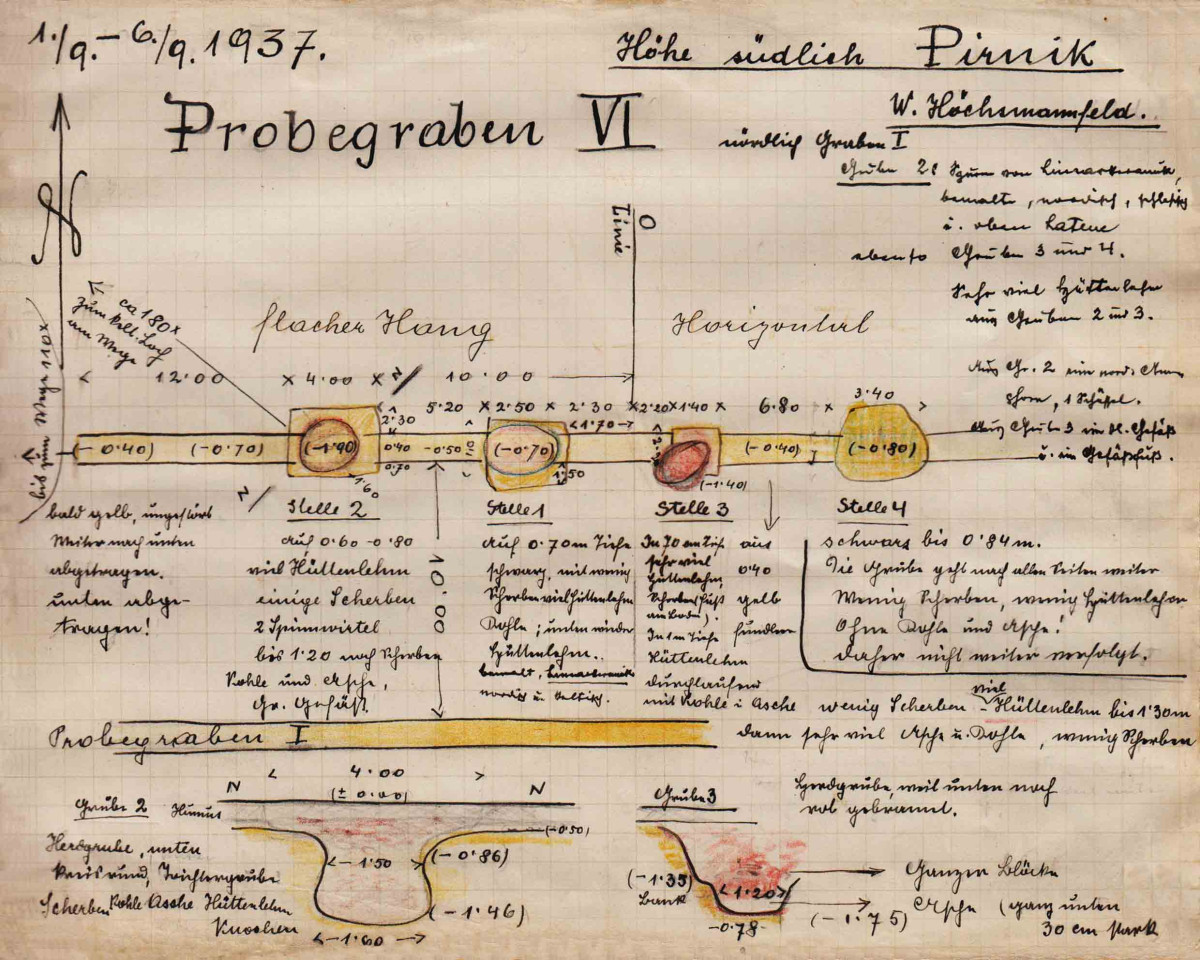 1./9.–6./9.1937.
Höhe südlich Pirnik
W. Höchsmannfeld.
Probegraben VI
nördlich Graben I
Gruben 2: Spuren von Linearkeramik,
bemalte, nordisch, schlesisch
u. oben Latene
ebenso Gruben 3 und 4.
Sehr viel Hüttenlehm
aus Gruben 2 und 3.
Aus Gr. 2 eine nord.
1 Schüssel.
Aus Grube 3 ein kl. Gefäß
u. ein Gefäßfuß.
N
O
Linie
bis zum Wege 110x
ca 180x
zum Loch
am Wege
flacher Hang
Horizontal
12·00 × 4·00 × 10·00
5·20 × 2·50 × 2·30 × 2·20 × 1·40 × 6·80 ×
3·40
2·30
1·70
(-0·40) (-0·70) (-1·90) 0·40 -0·50 (-0·70) (-0·40) (-0·80)
0·70
1·60
1·50
(-1·40)
bald gelb, ungestört
Weiter nach unten
abgetragen.
unten abge-
tragen!
Stelle 2
auf 0·60 -0·80
viel Hüttenlehm
einige Scherben
2 Spinnwirtel
bis 1·20 noch Scherben
Kohle und Asche,
Gr. Gefäß.
10·00
Stelle 1
Auf 0·70 m Tiefe
schwarz, mit wenig
Scherben viel Hüttenlehm
Kohle; unten wieder
Hüttenlehm..
bemalt, Linearkeramik
nordisch u. keltisch.
Stelle 3
In 70 cm Tiefe
sehr viel
Hüttenlehm,
Scherben (Fuß
am Boden).
In 1 m Tiefe
Hüttenlehm
durchlaufend
mit Kohle i Asche
aus
0·40
gelb
fundleer
Stelle 4
schwarz bis 0·84 m.
Die Grube geht nach allen Seiten weiter
Wenig Scherben, wenig Hüttenlehm
Ohne Kohle und Asche!
daher nicht weiter verfolgt.
wenig Scherben – viel Hüttenlehm bis 1·30 m
dann sehr viel Asche u. Kohle, wenig Scherben
Probegraben I
N 4·00 N
(± 0·00)
Grube 2 Humus
(-0·50)
Herdgrube, unten
kreisrund, Trichtergrube
Scherben Kohle Asche Hüttenlehm
Knochen
1·50
(-0·86)
(-1·46)
1·60
Grube 3
Herdgrube, weil unten noch
rot gebrannt.
(-1·35)
Bank
1·20
-0·78-
(-1·75)
Ganzer Blöcke
Asche (ganz unten
30 cm stark